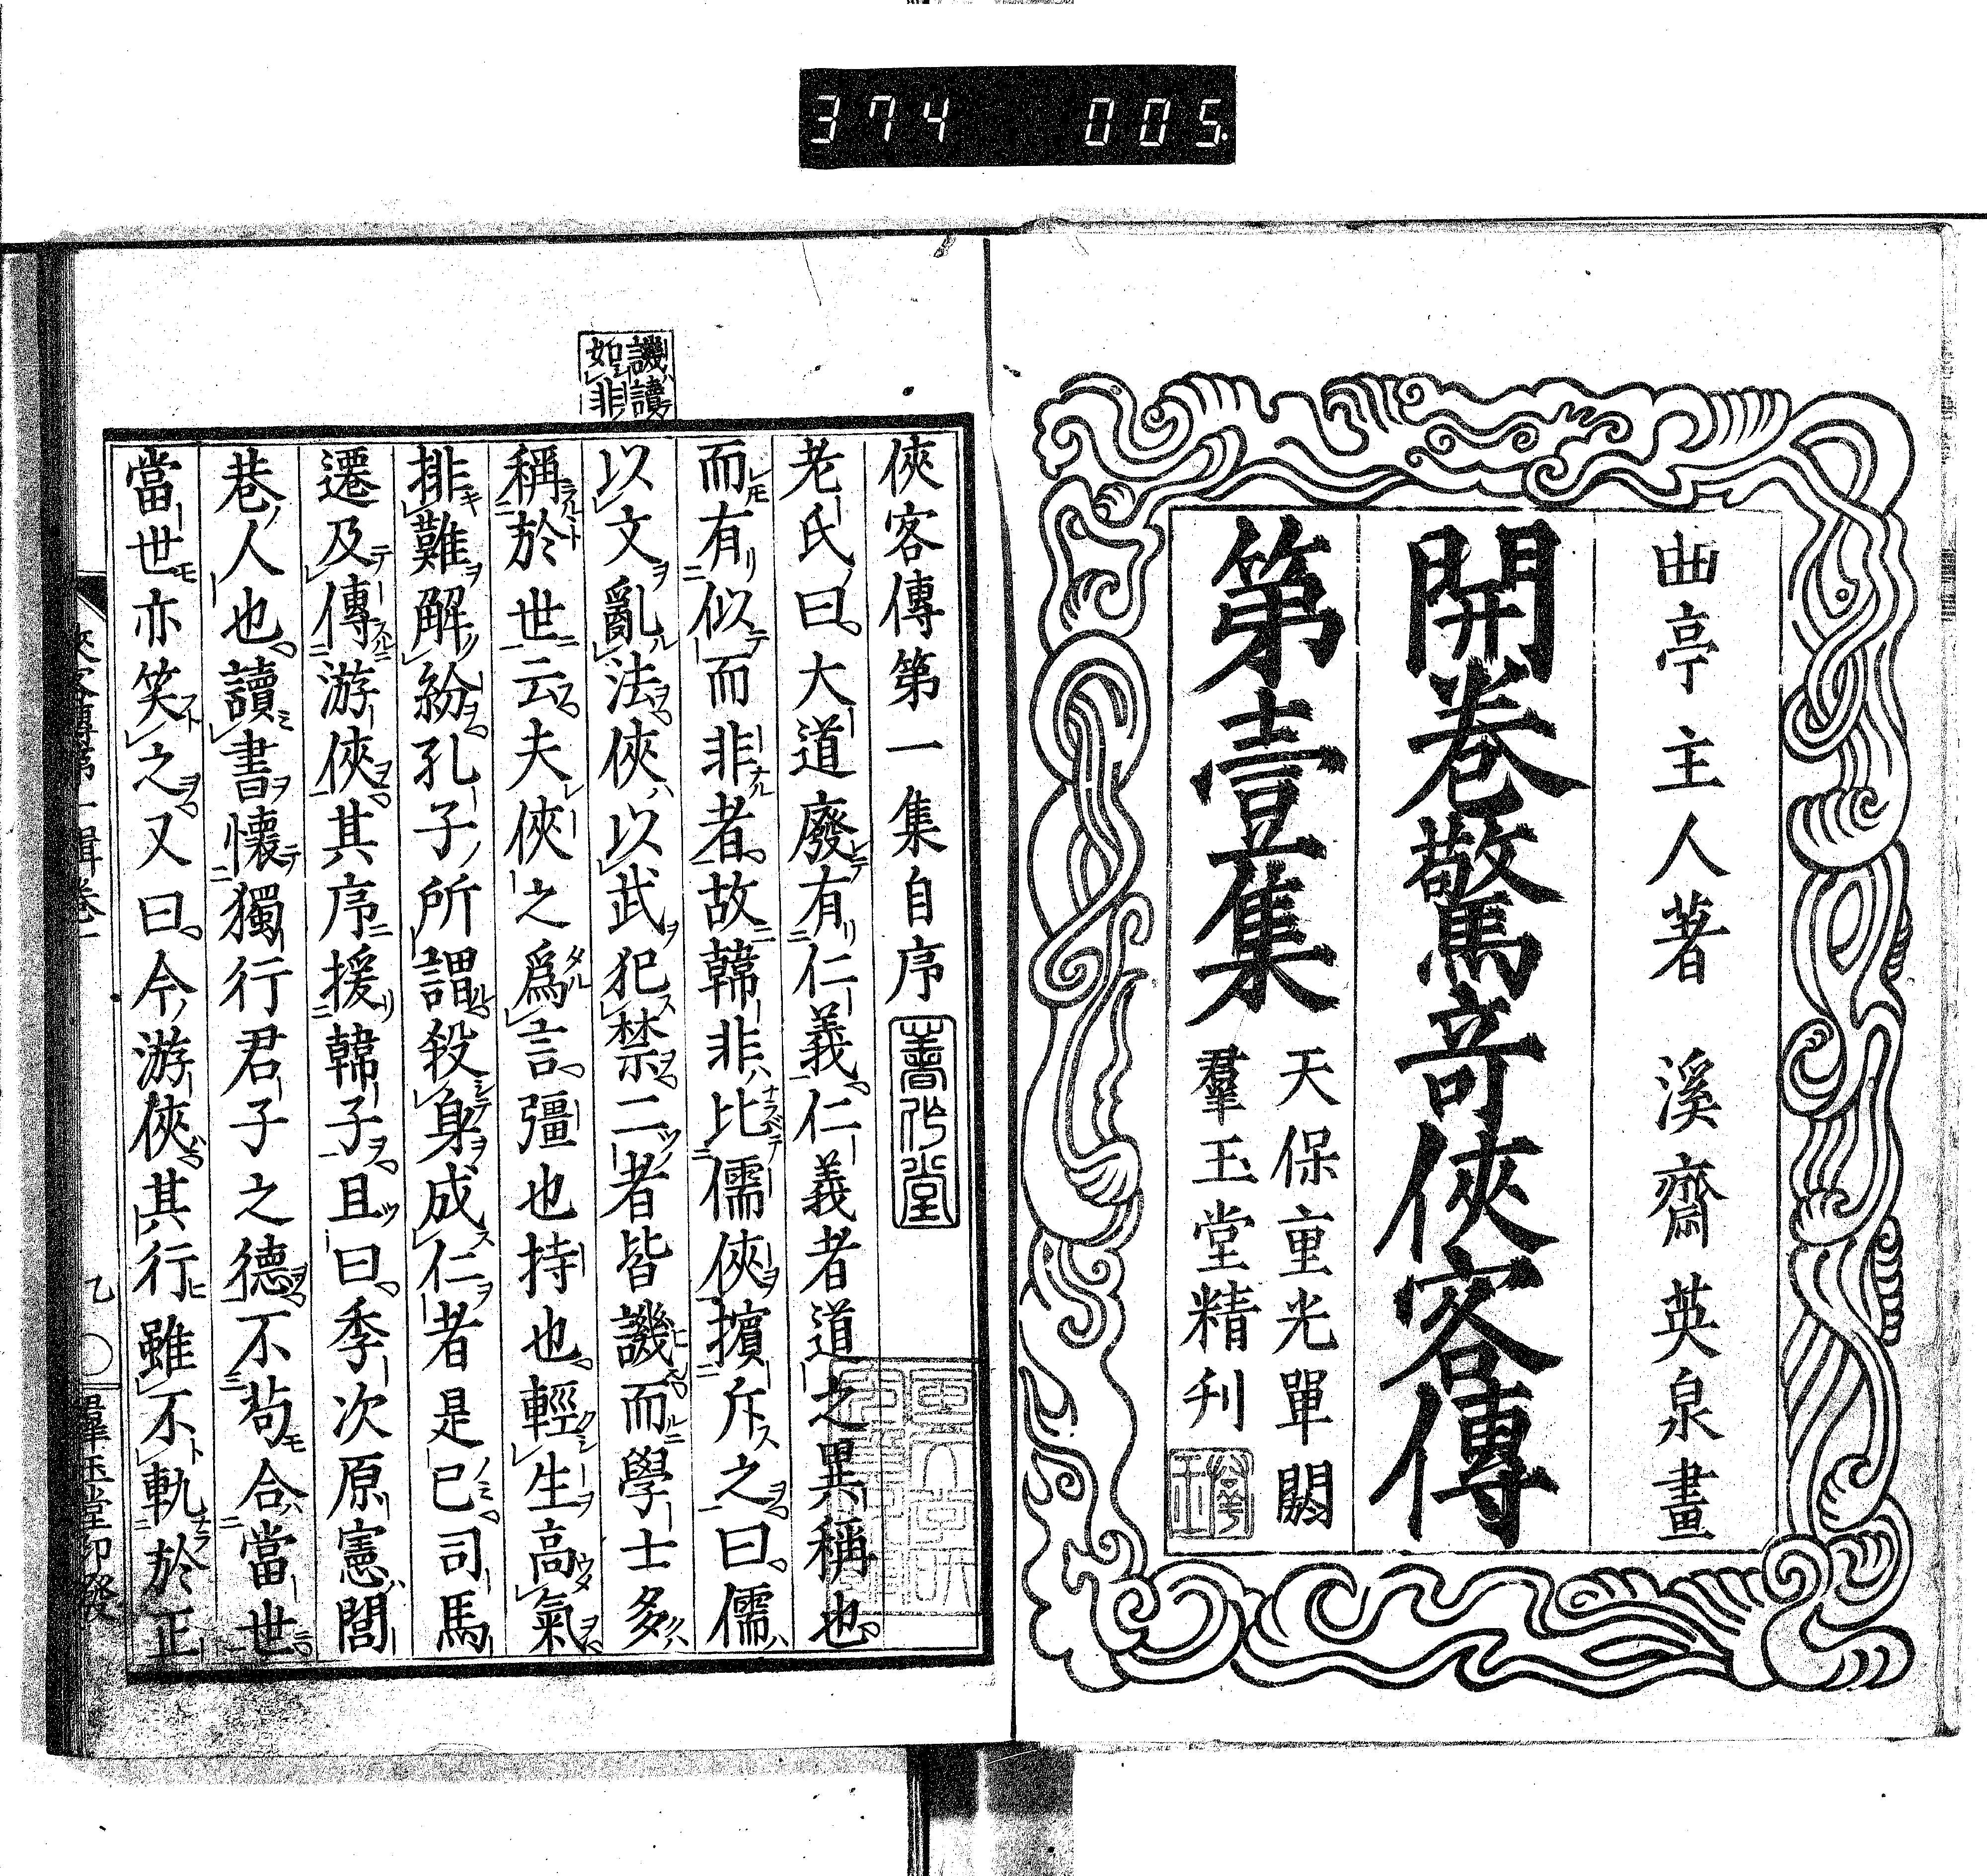 374 005
曲亭主人著 溪齋英泉畫
開卷驚竒俠客傳
第壹集
天保重光單閼
羣玉堂精刋
譏讀
如非
俠客傳第一集自序
老氏曰。大道廢有仁義。仁義者道之異稱也。
而有似而非者。故韓非比儒俠擯斥之曰。儒
以文亂法俠以武犯禁二者皆譏而學士多
稱於世云夫俠之爲言。彊也持也。輕生高氣
排難解紛孔子所謂殺身成仁者是已。司馬
遷及傳游俠。其序援韓子。且曰。季次原憲閭
巷人也。讀書懷獨行君子之德不苟合當世
當世亦笑之。又曰。今游俠其行雖不軌於正